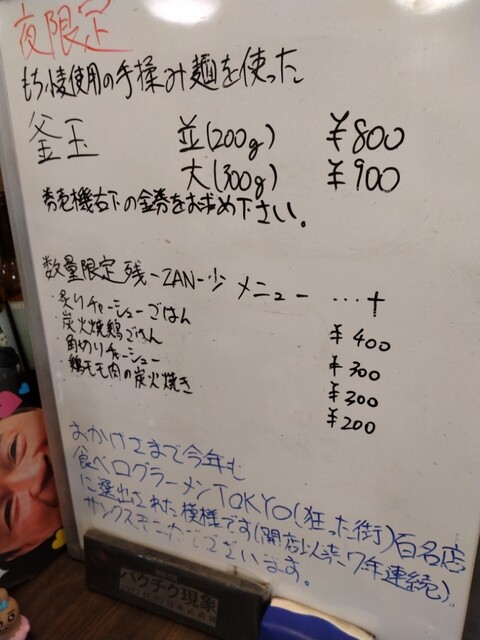 夜限定
もち姫使用の手揉み麺を使った
釜玉 並(200g) ¥800
大(300g) ¥900
券売機右下の金券をお求め下さい。
数量限定 残-ZAN-少 メニュー …+
・炙りチャーシューごはん ¥400
・炭火焼鶏ごはん ¥300
・角切りチャーシュー ¥300
・鶏モモ肉の炭火焼き ¥200
おかげさまで今年も
食べログラーメンTOKYO(狂った街)百名店
に選出された模様です(開店以来7年連続)。
サンクスモニカでございます。
バクチク現象